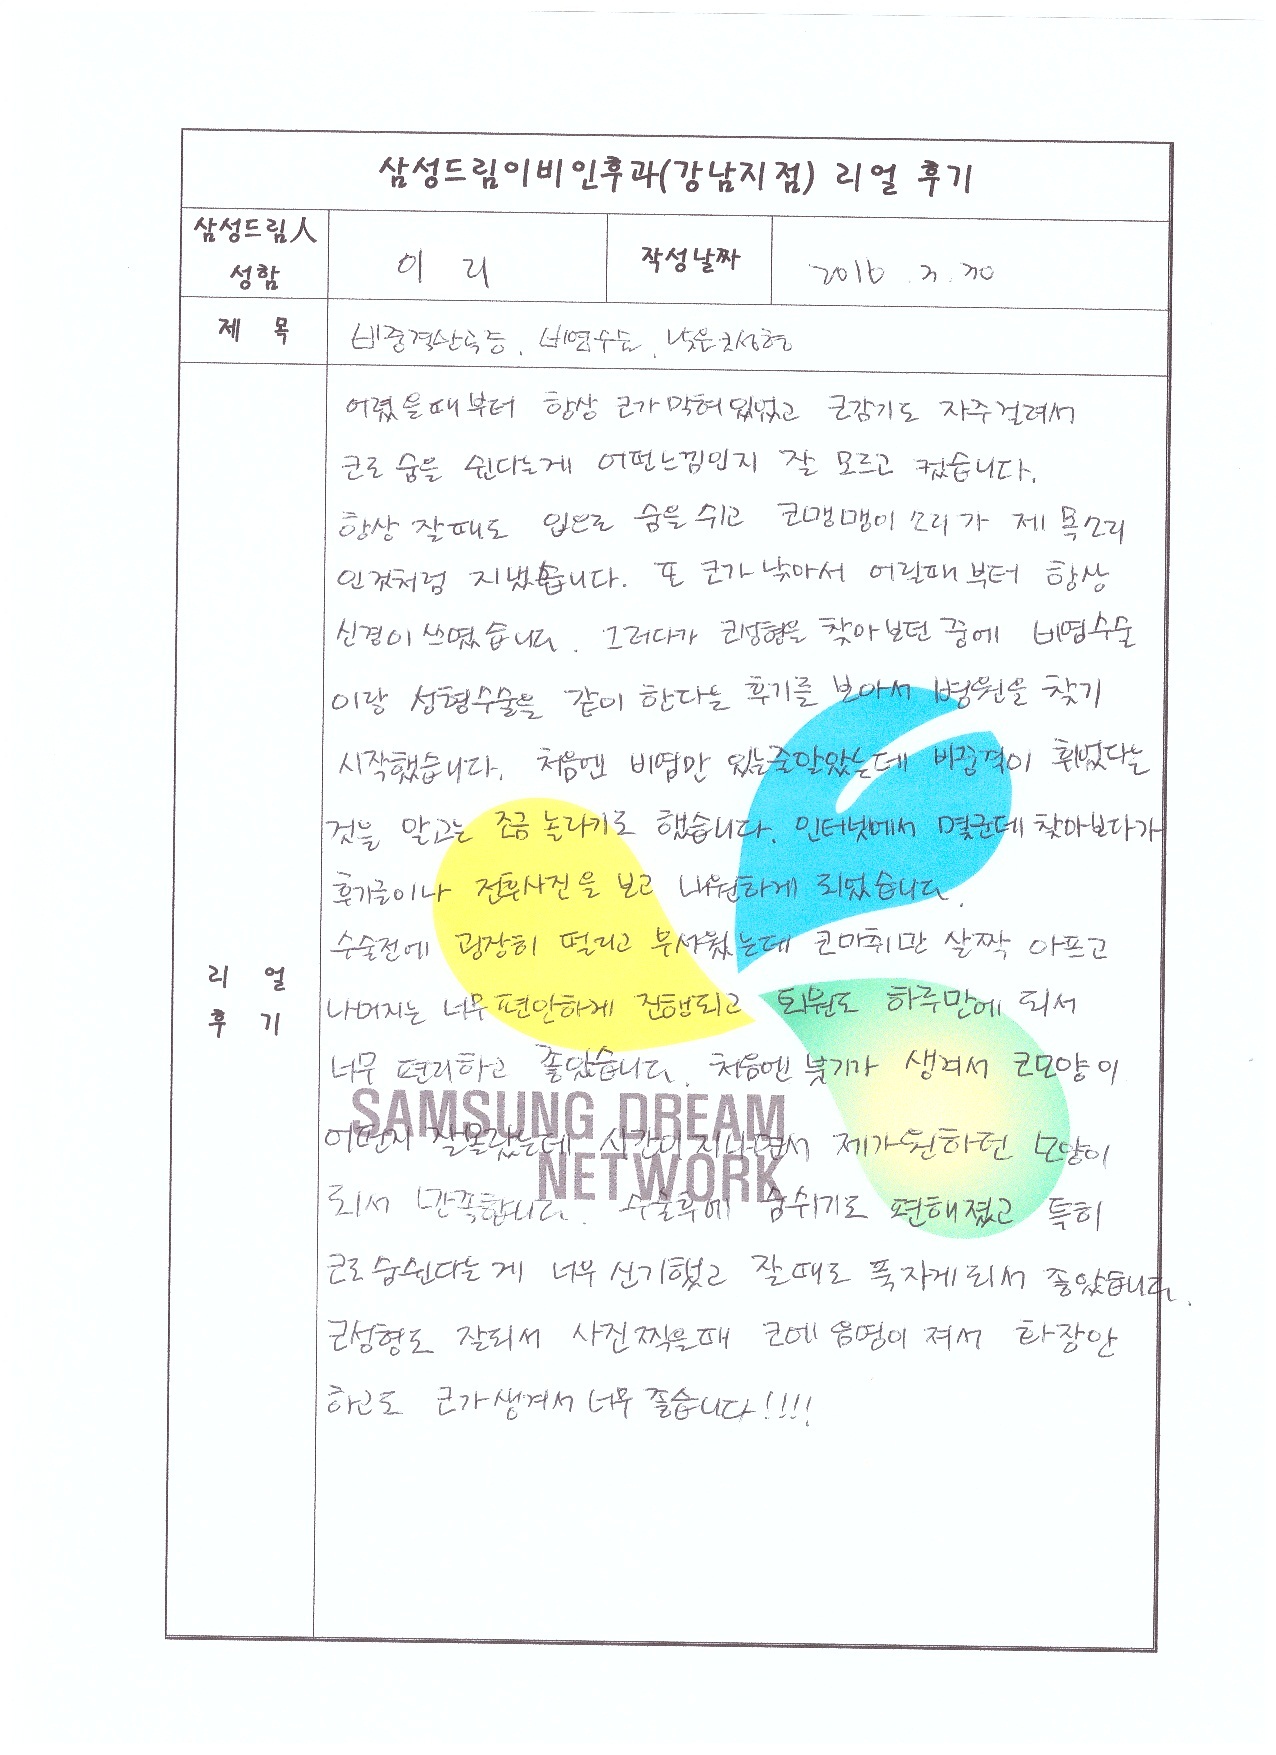 삼성드림이비인후과(강남지점) 리얼 후기
삼성드림人 성함
이 리
작성날짜
2016.
제 목
비중격만곡증, 비염수술, 낮은코성형
리 얼 후 기
어렸을때부터 항상 코가 막혀있었고 코감기도 자주걸려서
코로 숨을 쉰다는게 어떤느낌인지 잘 모르고 컸습니다.
항상 잘때도 입으로 숨을 쉬고 코맹맹이 소리가 제 목소리
인것처럼 지냈습니다. 또 코가 낮아서 어릴때부터 항상
신경이 쓰였습니다. 그러다가 코성형을 찾아보던 중에 비염수술
이랑 성형수술을 같이 한다는 후기를 보아서 병원을 찾기
시작했습니다. 처음엔 비염만 있는줄알았는데 비중격이 휘었다는
것을 알고는 조금 놀라기도 했습니다. 인터넷에서 몇군데 찾아보다가
후기글이나 전후사진을 보고 내원하게 되었습니다.
수술전에 굉장히 떨리고 무서웠는데 코마취만 살짝 아프고
나머지는 너무 편안하게 진행되고 퇴원도 하루만에 되서
너무 편리하고 좋았습니다. 처음엔 붓기가 생겨서 코모양이
어떤지 잘몰랐는데 시간이 지나면서 제가원하던 모양이
되서 만족합니다. 수술후에 숨쉬기도 편해졌고 특히
코로 숨쉰다는게 너무 신기했고 잘때도 푹자게되서 좋았습니다.
코성형도 잘되서 사진찍을때 코에 음영이 져서 화장안
하고도 코가생겨서 너무 좋습니다!!!!
SAMSUNG DREAM
NETWORK